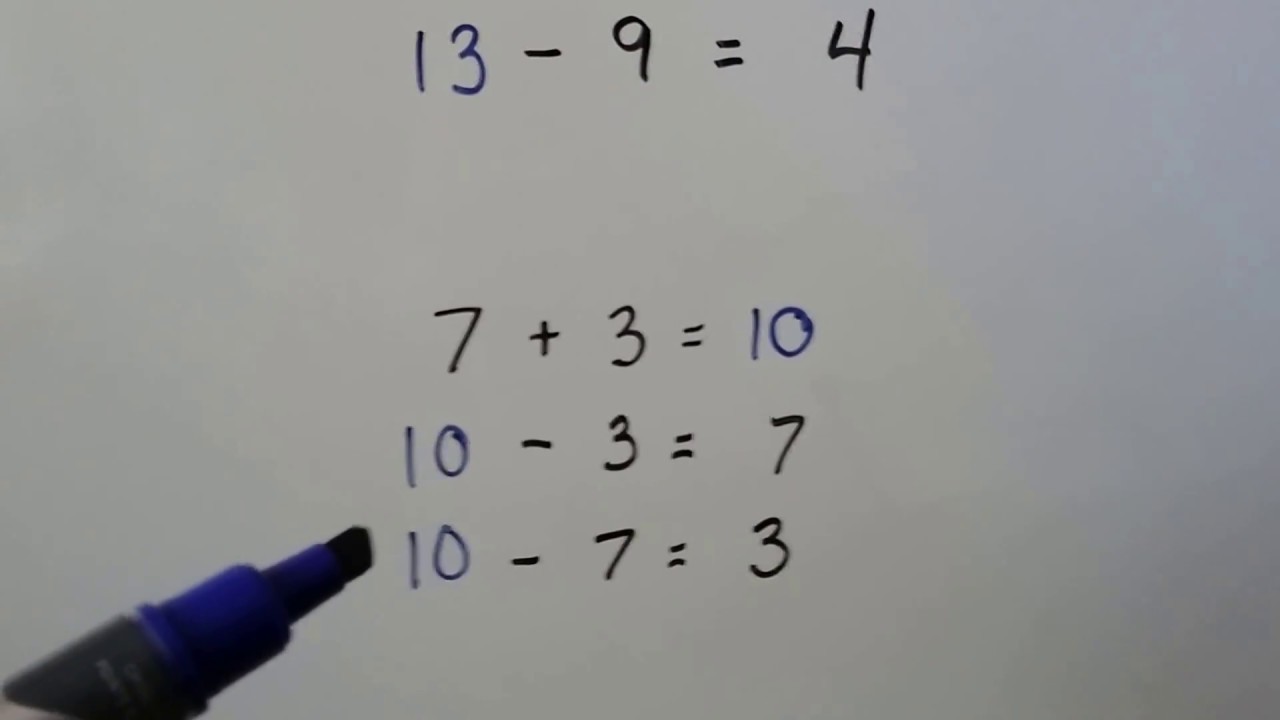 13 - 9 = 4
7 + 3 = 10
10 - 3 = 7
10 - 7 = 3